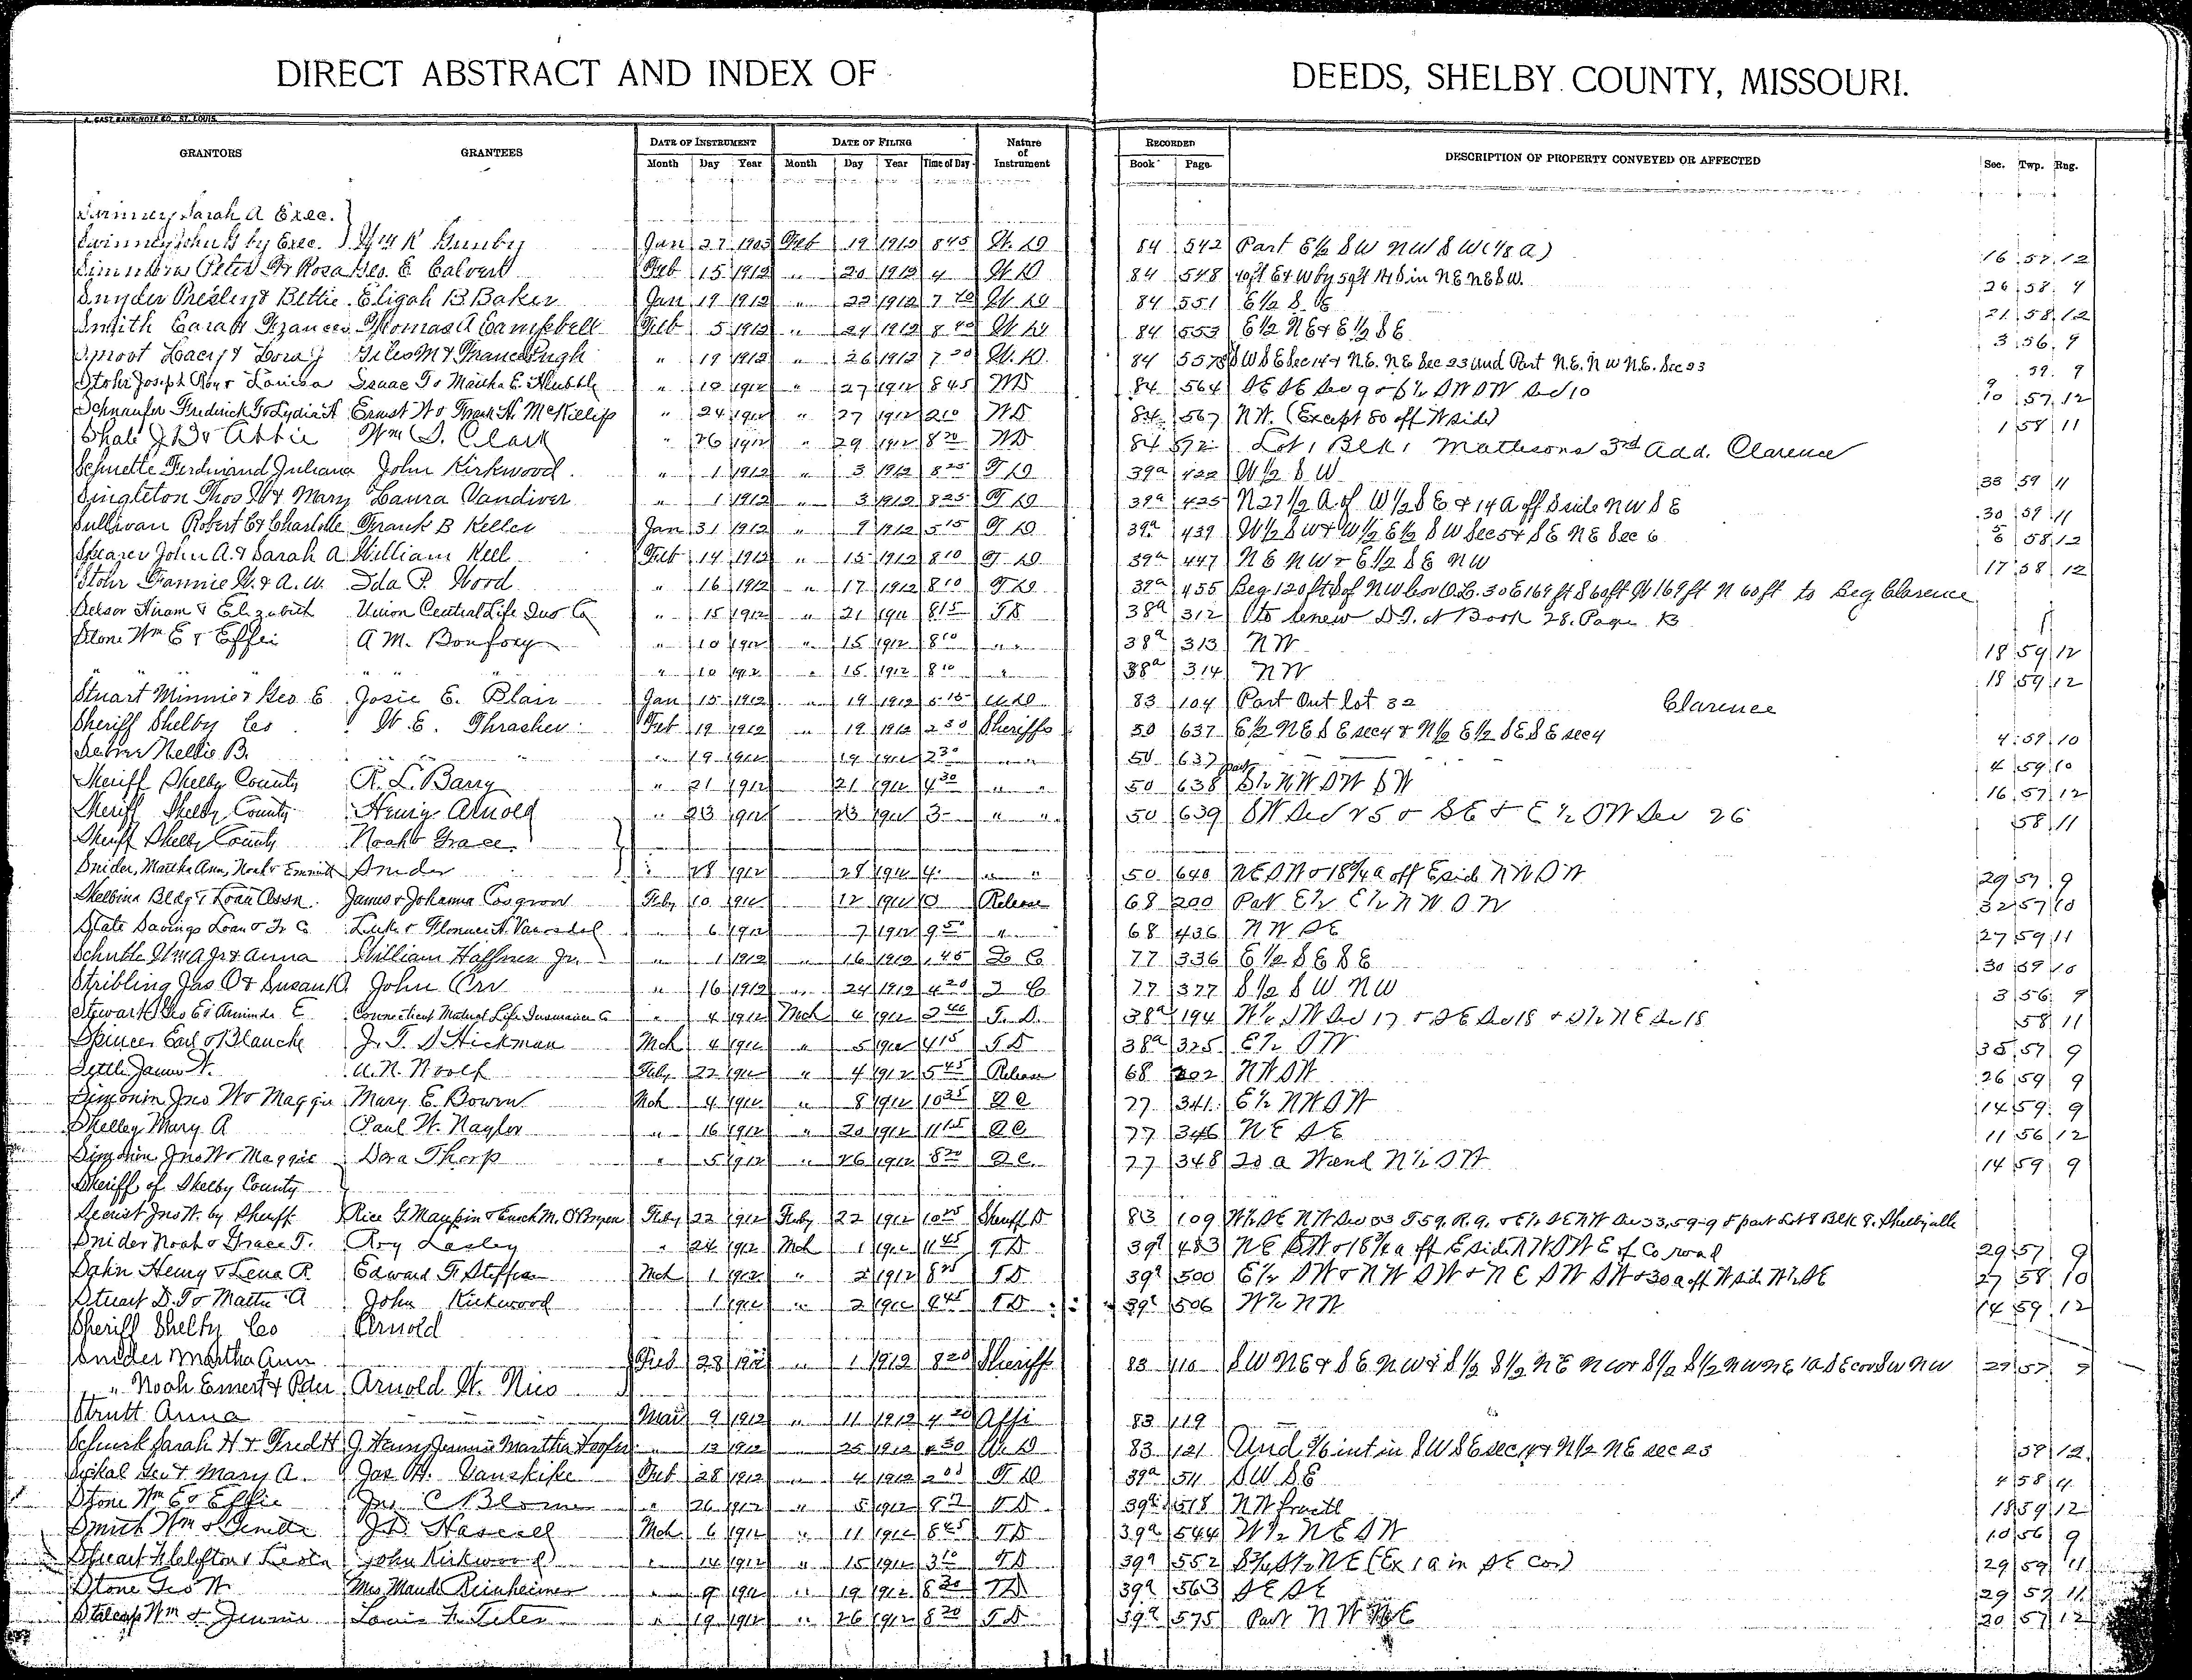 DIRECT ABSTRACT AND INDEX OF DEEDS, SHELBY COUNTY, MISSOURI.
A. GAST BANK-NOTE CO., ST. LOUIS.
GRANTORS GRANTEES DATE OF INSTRUMENT DATE OF FILING Nature of Instrument RECORDED DESCRIPTION OF PROPERTY CONVEYED OR AFFECTED Sec. Twp. Rng.
Month Day Year Month Day Year Time of Day Book Page
Swinney Sarah A Exec.
Swinney John G by Exec. Wm K Gunby Jan 27 1903 Feb 19 1912 8 45 W. D 84 542 Part E½ SW NW SW (⅛ a) 16 57 12
Peter & Rosa Geo. E Calvert Feb 15 1912 " 20 1912 4 W D 84 548 in NE NE SW. 26 58 9
Snyder Presley & Bettie Eligah B. Baker Jan 19 1912 " 22 1912 W D 84 551 E½ S E 21 58 12
Smith Cara & Frances Thomas A Campbell Feb 5 1912 " 24 1912 8 40 W D 84 553 E½ NE & E½ SE 3 56 9
Sproot Lacey & Lora J Giles M & Frances Pugh " 19 1912 " 26 1912 7 20 W. D. 84 557 SW SE Sec 14 & N.E. N.E Sec 23 und Part N.E. N W N.E. Sec 23 59 9
Stohr Joseph Roy & Louisa Isaac T & Martha E. Hubble " 10 1912 " 27 1912 8 45 WD 84 564 SE SE Sec 9 & S½ SW SW Sec 10 9 10 57 12
Schnaufer Fredrick T & Lydia A Ernst W & Frank H. McKillip " 24 1912 " 27 1912 2 10 WD 84 567 NW. (Except 80 off W side) 1 58 11
Shale J D & Abbie Wm S. Clark " 26 1912 " 29 1912 8 20 WD 84 592 Lot 1 Blk 1 Mathesons 3rd Add. Clarence
Schuette Ferdinand Juliana John Kirkwood " 1 1912 " 3 1912 8 25 T D 39a 422 W½ S W 33 59 11
Singleton Thos W & Mary Laura Vandiver " 1 1912 " 3 1912 8 25 T D 39a 425 N 27½ A of W½ SE & 14 A off S side NW SE 30 59 11
Sullivan Robert C & Charlotte Frank B Keller Jan 31 1912 " 9 1912 5 15 T D 39a 439 W½ SW & W½ E½ SW Sec 5 & SE NE Sec 6 5 6 58 12
Spearer John A. & Sarah A William Keel Feb 14 1912 " 15 1912 8 10 T D 39a 447 NE NW & E½ SE NW 17 58 12
Stohr Fannie G. & A. W. Ida P. Wood " 16 1912 " 17 1912 8 10 T D 39a 455 Beg 120 ft S of NW Cor O.L. 30 E 169 ft S 60 ft W 169 ft N 60 ft to Beg Clarence
Selsor Hiram & Elizabeth Union Central Life Ins Co " 15 1912 " 21 1912 8 15 T D 38a 312 to renew D.T. at Book 28. Page 13
Stone Wm E & Effie A M. Bonfoey " 10 1912 " 15 1912 8 10 " " 38a 313 NW 18 59 12
" " " 10 1912 " 15 1912 8 10 " 38a 314 NW 18 59 12
Stuart Minnie & Geo E Josie E. Blair Jan 15 1912 " 19 1912 5 15 W D 83 104 Part Out lot 32 Clarence
Sheriff Shelby Co W. E. Thrasher Feb 19 1912 " 19 1912 2 30 Sheriffs 50 637 E½ NE SE sec 4 & N½ E½ SE SE sec 4 4 59 10
Nellie B. " 19 1912 19 1912 2 30 " " 50 637 4 59 10
Sheriff Shelby County R. L. Barry " 21 1912 21 1912 4 30 " " 50 638 part S½ NW SW SW 16 57 12
Sheriff Shelby County Henry Arnold " 23 1912 23 1912 3 " " 50 639 SW Sec 25 & SE & E½ SW Sec 26 58 11
Sheriff Shelby County Noah & Grace
Snider, Martha Ann, Noah & Emmett Snider " 28 1912 28 1912 4 " " 50 640 NE SW & 18¾ a off E side NW SW 29 57 9
Shelbina Bldg & Loan Assn. James & Johanna Cosgrove Feby 10 1912 12 1912 Release 68 200 Part E½ E½ NW SW 32 57 10
State Savings Loan & Tr Co Luke & Florence N. Vanosdol " 6 1912 7 1912 9 50 " 68 436 NW SE 27 59 11
Schutte Wm A Jr & Anna William Haffner Jr. " 1 1912 " 16 1912 1 45 Q C 77 336 E½ SE SE 30 59 10
Stribling Jas O & Susan O. John Orr " 16 1912 " 24 1912 4 20 Q C 77 327 S½ SW NW 3 56 9
Stewart Geo E & Arminda E Connecticut Mutual Life Insurance Co " 4 1912 Mch 4 1912 2 40 T. D. 38a 194 W½ SW Sec 17 & SE Sec 18 & S½ NE Sec 18 58 11
Spencer Earl & Blanche J. T. S Hickman Mch 4 1912 " 5 1912 4 15 T D 38a 325 E½ SW 35 57 9
Settle James W. A. N. Woolf Feby 22 1912 " 4 1912 5 45 Release 68 202 NW SW 26 59 9
Simonin Jno W & Maggie Mary E. Bowen Mch 4 1912 " 8 1912 10 35 Q C 77 341 E½ NW SW 14 59 9
Shelley Mary A Paul W. Naylor " 16 1912 " 20 1912 11 15 Q C 77 346 NE SE 11 56 12
Simonin Jno W & Maggie Dora Thorp " 5 1912 " 26 1912 8 20 Q C. 77 348 20 a W end N½ SW 14 59 9
Sheriff of Shelby County
Secrist Jno W. by Sheriff Rice G. Maupin & Enoch M. O'Bryen Feby 22 1912 Feby 22 1912 10 25 Sheriff D 83 109 W½ SE NW Sec 33 T 59. R. 9. & E½ SE NW Sec 33, 59-9 & part Lot 8 Blk 8. Shelbyville
Snider Noah & Grace T. Roy Lasley " 24 1912 Mch 1 1912 11 45 T D 39a 483 NE SW & 18¾ a off E side NW SW E of Co road 29 57 9
Sahn Henry & Lena R. Edward F. Steffen Mch 1 1912 " 2 1912 8 25 T D 39a 500 E½ SW & NW SW & NE SW SW & 30 a off W side W½ SE 27 58 10
Stuart D. T & Mattie A John Kirkwood 1 1912 " 2 1912 9 45 T D 39a 506 W½ NW 14 59 12
Sheriff Shelby Co Arnold
Snider Martha Ann Feb 28 1912 " 1 1912 8 20 Sheriffs 83 110 SW NE & SE NW & S½ S½ NE NW & S½ S½ NW NE 1a SE cor SW NW 29 57 9
" Noah Emmert & Arnold W. Nico
Strutt Anna Mar 9 1912 " 11 1912 4 20 Affi 83 119
Sarah H & Fred H J Henry Jennie Martha Hooper " 13 1912 " 25 1912 4 30 W D 83 121 Und. 3/6 int in SW SE sec 14 & N½ NE sec 23 59 12
Geo & Mary A. Jas H. Vanskike Feb 28 1912 " 4 1912 2 00 T D 39a 511 SW SE 4 58 9
Stone Wm E & Effie Jno C Blomer " 26 1912 " 5 1912 T D 39a 518 NW fractl 18 59 12
Smith Wm & J D Hascell Mch 6 1912 " 11 1912 8 45 T D 39a 544 W½ NE SW 10 56 9
Stuart F Clifton & Leota John Kirkwood " 14 1912 " 15 1912 3 10 T D 39a 552 NE (Ex 1 a in SE Cor) 29 59 11
Stone Geo W Mrs Maude Reinheimer " 9 1912 " 19 1912 8 30 T D 39a 563 SE SE 29 57 11
Stalcup Wm & Jennie Louis F. " 19 1912 " 26 1912 8 20 T D 39a 575 Part NW NE 20 57 12